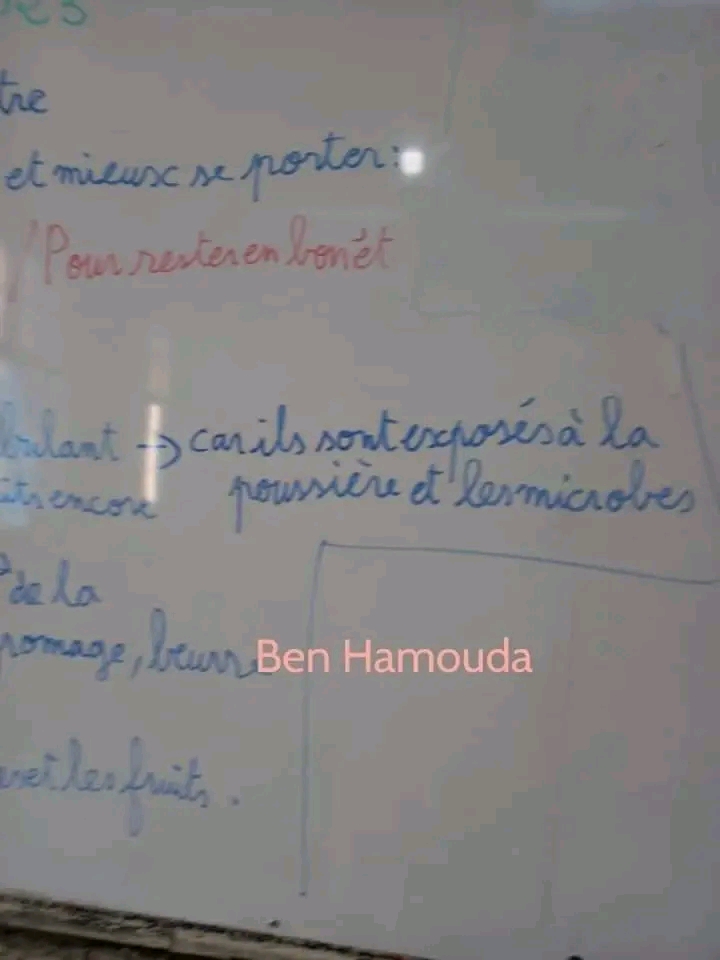 et mieux se porter:
Pour rester en bon ét
car ils sont exposés à la
its encore poussière et les microbes
de la
romage, beurre
Ben Hamouda
et les fruits.